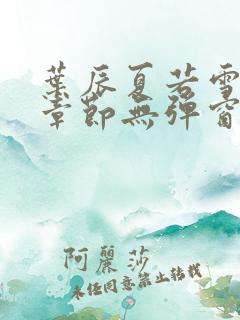 葉辰夏若雪
章節無彈窗
阿麗莎
未经同意禁止转载